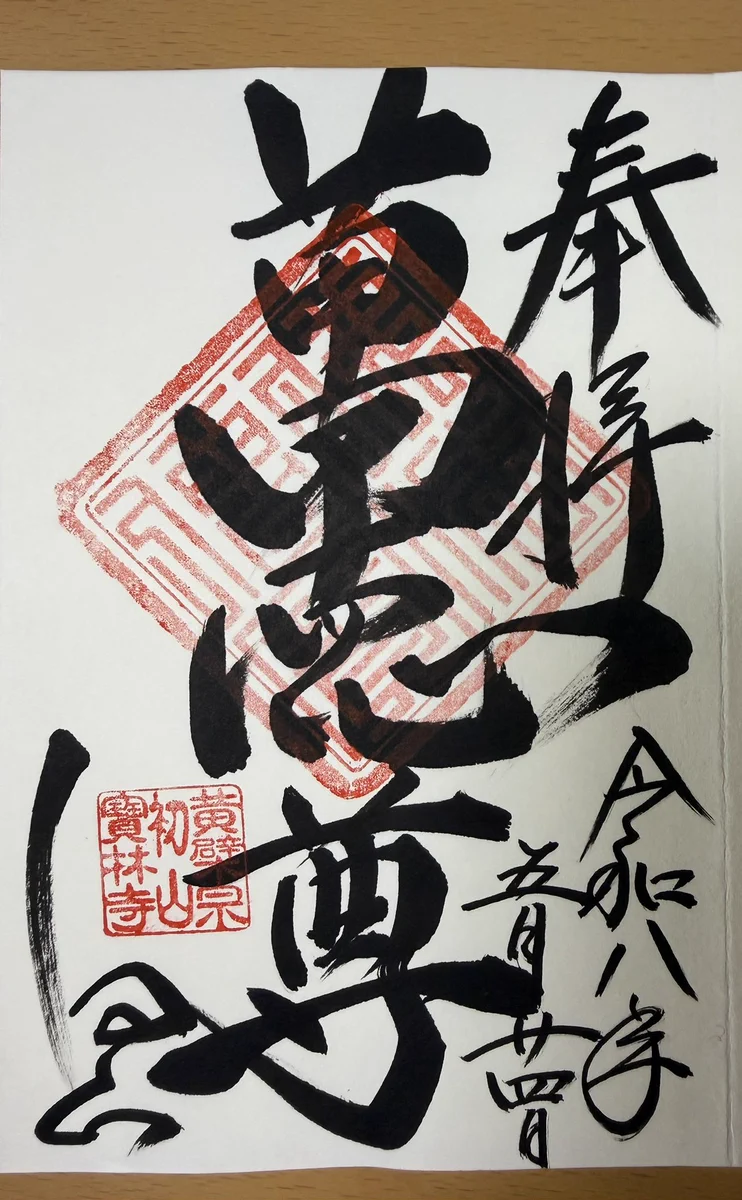 奉拝
令和八年
五月廿四日
萬徳尊
黄檗宗
初山
寶林寺